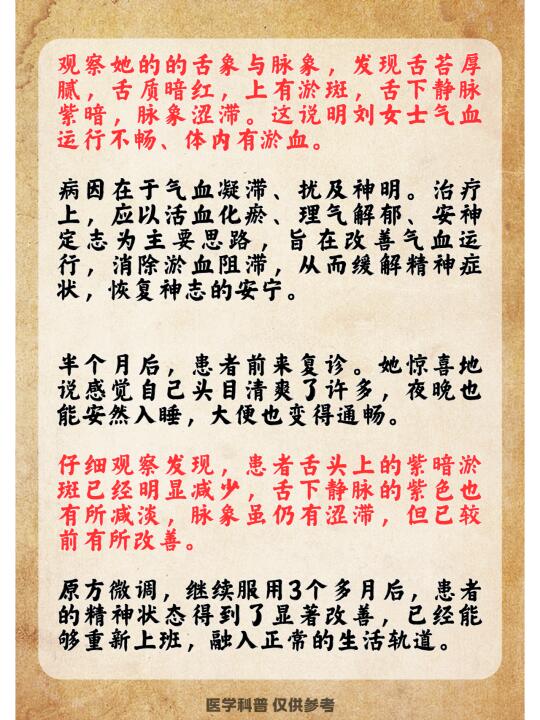 观察她的的舌象与脉象，发现舌苔厚
腻，舌质暗红，上有淤斑，舌下静脉
紫暗，脉象涩滞。这说明刘女士气血
运行不畅、体内有淤血。
病因在于气血凝滞、扰及神明。治疗
上，应以活血化瘀、理气解郁、安神
定志为主要思路，旨在改善气血运
行，消除淤血阻滞，从而缓解精神症
状，恢复神志的安宁。
半个月后，患者前来复诊。她惊喜地
说感觉自己头目清爽了许多，夜晚也
能安然入睡，大便也变得通畅。
仔细观察发现，患者舌头上的紫暗淤
斑已经明显减少，舌下静脉的紫色也
有所减淡，脉象虽仍有涩滞，但已较
前有所改善。
原方微调，继续服用3个多月后，患者
的精神状态得到了显著改善，已经能
够重新上班，融入正常的生活轨道。
医学科普 仅供参考